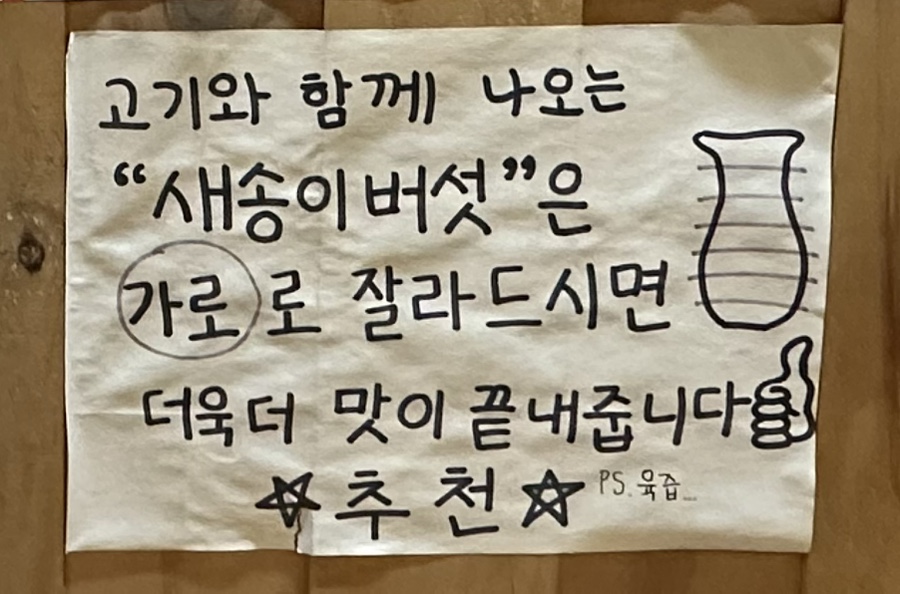 고기와 함께 나오는
“새송이버섯”은
가로로 잘라드시면
더욱더 맛이 끝내줍니다
추천 PS. 육즙...